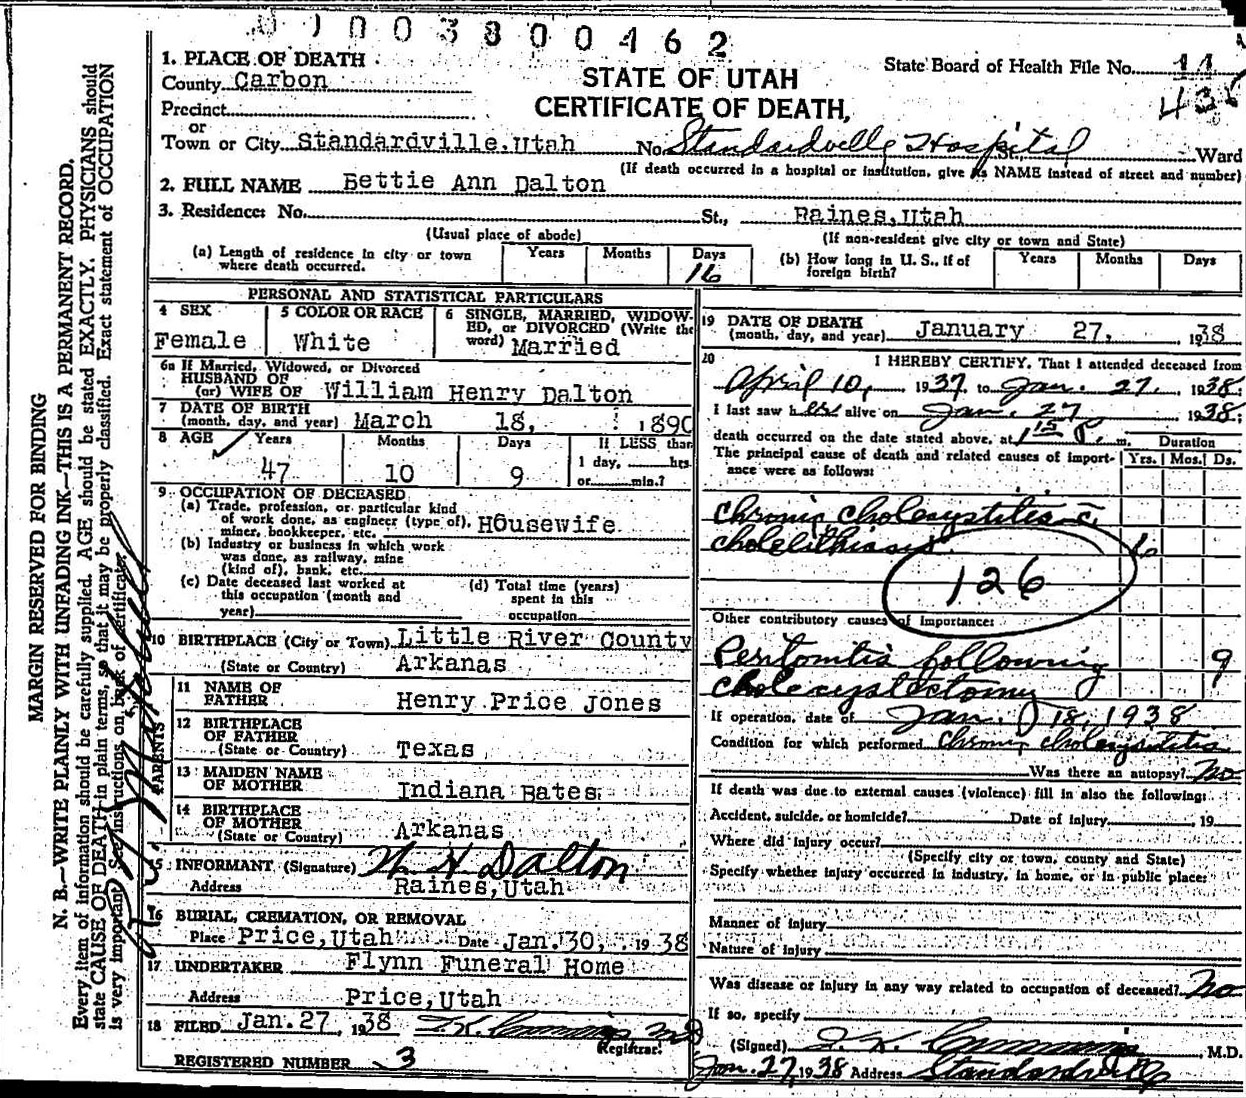 003800462
1. PLACE OF DEATH
County Carbon
Precinct
or
Town or City Standardville, Utah
STATE OF UTAH
CERTIFICATE OF DEATH
State Board of Health File No. 11
43
No. Standardville Hospital St., Ward
(If death occurred in a hospital or institution, give its NAME instead of street and number)
2. FULL NAME Bettie Ann Dalton
3. Residence: No. St., Raines, Utah
(Usual place of abode) (If non-resident give city or town and State)
(a) Length of residence in city or town where death occurred. Years Months Days 16
(b) How long in U. S., if of foreign birth? Years Months Days
PERSONAL AND STATISTICAL PARTICULARS
4 SEX Female
5 COLOR OR RACE White
6 SINGLE, MARRIED, WIDOWED, or DIVORCED (Write the word) Married
6a If Married, Widowed, or Divorced
HUSBAND OF
(or) WIFE OF William Henry Dalton
7 DATE OF BIRTH
(month, day, and year) March 18, 1890
8 AGE Years 47 Months 10 Days 9
If LESS than 1 day, hrs. or min.?
9 OCCUPATION OF DECEASED
(a) Trade, profession, or particular kind of work done, as engineer (type of), miner, bookkeeper, etc. Housewife
(b) Industry or business in which work was done, as railway, mine (kind of), bank, etc.
(c) Date deceased last worked at this occupation (month and year)
(d) Total time (years) spent in this occupation
10 BIRTHPLACE (City or Town) Little River County
(State or Country) Arkanas
PARENTS
11 NAME OF FATHER Henry Price Jones
12 BIRTHPLACE OF FATHER
(State or Country) Texas
13 MAIDEN NAME OF MOTHER Indiana Bates
14 BIRTHPLACE OF MOTHER
(State or Country) Arkanas
15 INFORMANT (Signature) W H Dalton
Address Raines, Utah
16 BURIAL, CREMATION, OR REMOVAL
Place Price, Utah Date Jan. 30, 1938
17 UNDERTAKER Flynn Funeral Home
Address Price, Utah
18 FILED Jan. 27, 1938 J. K. Cummings MD
Registrar.
REGISTERED NUMBER 3
19 DATE OF DEATH
(month, day, and year) January 27, 1938
20 I HEREBY CERTIFY, That I attended deceased from
April 10, 1937 to Jan. 27, 1938
I last saw her alive on Jan. 27 1938;
death occurred on the date stated above, at 1 15 P. m. Duration
The principal cause of death and related causes of importance were as follows: Yrs. Mos. Ds.
Chronic cholecystitis c.
cholelithiasis
126
Other contributory causes of importance:
Peritonitis following 9
cholecystectomy
If operation, date of Jan. 18, 1938
Condition for which performed Chronic cholecystitis
Was there an autopsy? No
If death was due to external causes (violence) fill in also the following:
Accident, suicide, or homicide? Date of injury , 19
Where did injury occur?
(Specify city or town, county and State)
Specify whether injury occurred in industry, in home, or in public place:
Manner of injury
Nature of injury
Was disease or injury in any way related to occupation of deceased? No
If so, specify
(Signed) J. K. Cummings, M.D.
Jan. 27, 1938 Address Standardville
MARGIN RESERVED FOR BINDING
N. B.—WRITE PLAINLY WITH UNFADING INK—THIS IS A PERMANENT RECORD.
Every item of information should be carefully supplied. AGE should be stated EXACTLY. PHYSICIANS should
state CAUSE OF DEATH in plain terms, so that it may be properly classified. Exact statement of OCCUPATION
is very important. See instructions on back of certificate.